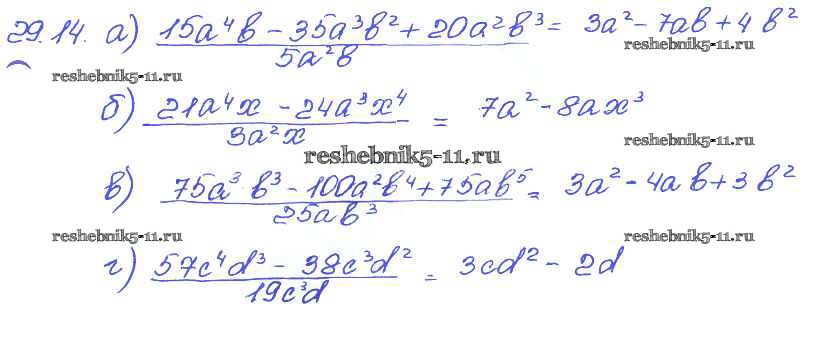 29.14. а) (15a⁴b − 35a³b² + 20a²b³) / (5a²b) = 3a² − 7ab + 4b²
reshebnik5-11.ru reshebnik5-11.ru
б) (21a⁴x − 24a³x⁴) / (3a²x) = 7a² − 8ax³
reshebnik5-11.ru
reshebnik5-11.ru
в) (75a³b³ − 100a²b⁴ + 75ab⁵) / (25ab³) = 3a² − 4ab + 3b²
reshebnik5-11.ru reshebnik5-11.ru
г) (57c⁴d³ − 38c³d²) / (19c³d) = 3cd² − 2d